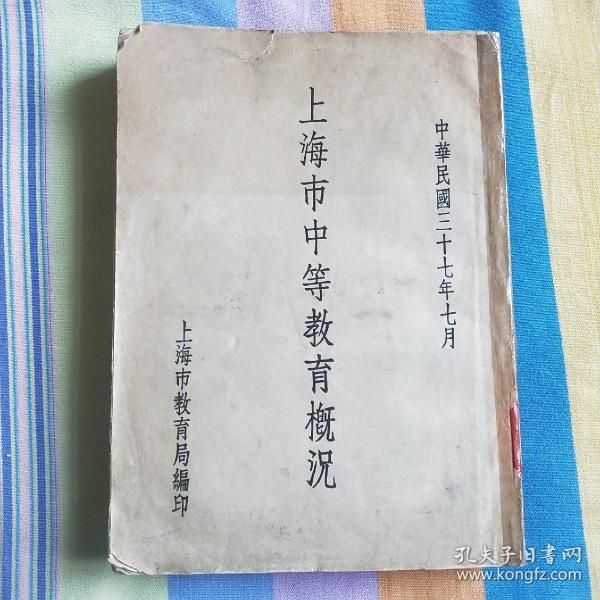 中華民國三十七年七月
上海市中等教育概况
上海市教育局編印
孔夫子旧书网
www.kongfz.com